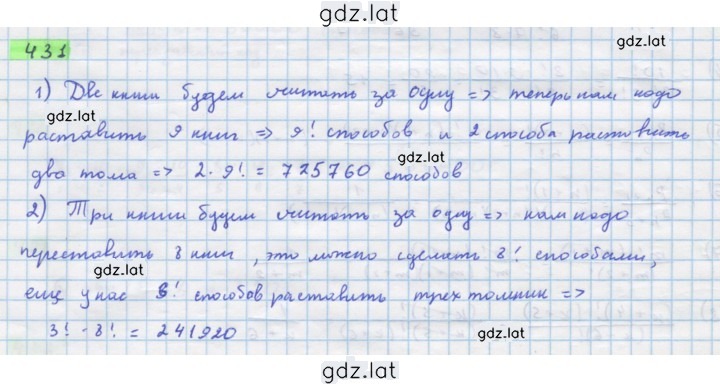 gdz.lat
gdz.lat
431
1) Две книги будем считать за одну => теперь нам надо
gdz.lat
расставить 9 книг => 9! способов и 2 способа раставить
gdz.lat
два тома => 2 · 9! = 725760 способов
2) Три книги будем считать за одну => нам надо
переставить 8 книг, это можно сделать 8! способами,
gdz.lat
еще у нас 3! способов раставить трех томник =>
3! · 8! = 241920
gdz.lat
gdz.lat